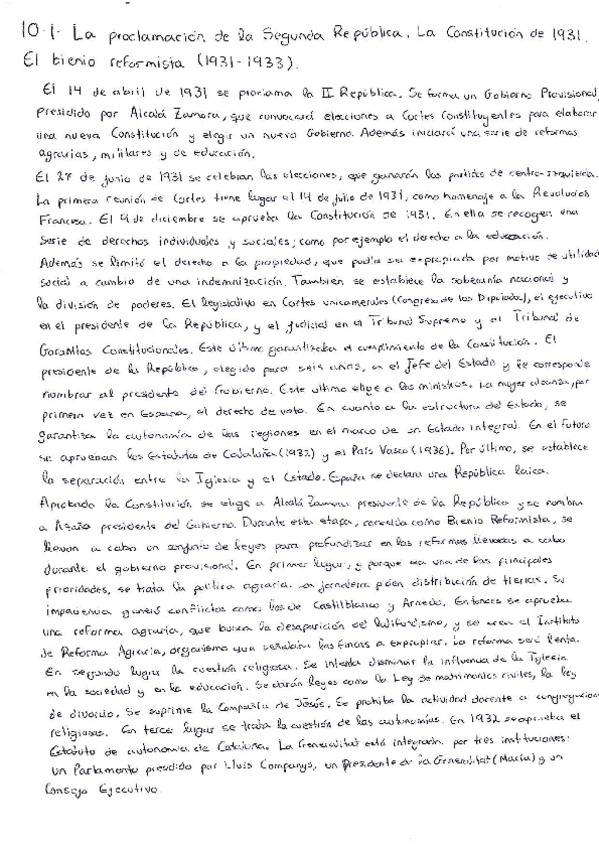 10.1. La proclamación de la Segunda República. La Constitución de 1931.
El bienio reformista (1931-1933).
El 14 de abril de 1931 se proclama la II República. Se forma un Gobierno Provisional,
presidido por Alcalá Zamora, que convocará elecciones a Cortes Constituyentes para elaborar
una nueva Constitución y elegir un nuevo Gobierno. Además iniciará una serie de reformas
agrarias, militares y de educación.
El 28 de junio de 1931 se celebran las elecciones, que ganarán los partidos de centro-izquierda.
La primera reunión de Cortes tiene lugar el 14 de julio de 1931, como homenaje a la Revolución
Francesa. El 9 de diciembre se aprueba la Constitución de 1931. En ella se recogen una
serie de derechos individuales y sociales; como por ejemplo el derecho a la educación.
Además se limitó el derecho a la propiedad, que podía ser expropiada por motivo de utilidad
social a cambio de una indemnización. También se establece la soberanía nacional y
la división de poderes. El legislativo en Cortes unicamerales (Congreso de los Diputados), el ejecutivo
en el presidente de la República, y el judicial en el Tribunal Supremo y el Tribunal de
Garantías Constitucionales. Este último garantizaba el cumplimiento de la Constitución. El
presidente de la República, elegido para seis años, es el Jefe del Estado y le corresponde
nombrar al presidente del Gobierno. Este último elige a los ministros. La mujer alcanza, por
primera vez en España, el derecho de voto. En cuanto a la estructura del Estado, se
garantiza la autonomía de las regiones en el marco de un Estado integral. En el futuro
se aprueban los Estatutos de Cataluña (1932) y el País Vasco (1936). Por último, se establece
la separación entre la Iglesia y el Estado. España se declara una República laica.
Aprobada la Constitución se elige a Alcalá Zamora presidente de la República y se nombra
a Azaña presidente del Gobierno. Durante esta etapa, conocida como Bienio Reformista, se
llevan a cabo un conjunto de leyes para profundizar en las reformas llevadas a cabo
durante el gobierno provisional. En primer lugar, y porque era una de las principales
prioridades, se trata la política agraria. Los jornaleros piden distribución de tierras. Su
impaciencia generó conflictos como los de Castilblanco y Arnedo. Entonces se aprueba
una reforma agraria, que busca la desaparición del latifundismo, y se crea el Instituto
de Reforma Agraria, organismo que señalaba las fincas a expropiar. La reforma será lenta.
En segundo lugar la cuestión religiosa. Se intenta disminuir la influencia de la Iglesia
en la sociedad y en la educación. Se darán leyes como la Ley de matrimonios civiles, la ley
de divorcio. Se suprime la Compañía de Jesús. Se prohíbe la actividad docente a congregaciones
religiosas. En tercer lugar se trata la cuestión de las autonomías. En 1932 se aprueba el
Estatuto de autonomía de Cataluña. La Generalitat está integrada por tres instituciones:
un Parlamento presidido por Lluís Companys, un Presidente de la Generalitat (Macià) y un
Consejo Ejecutivo.